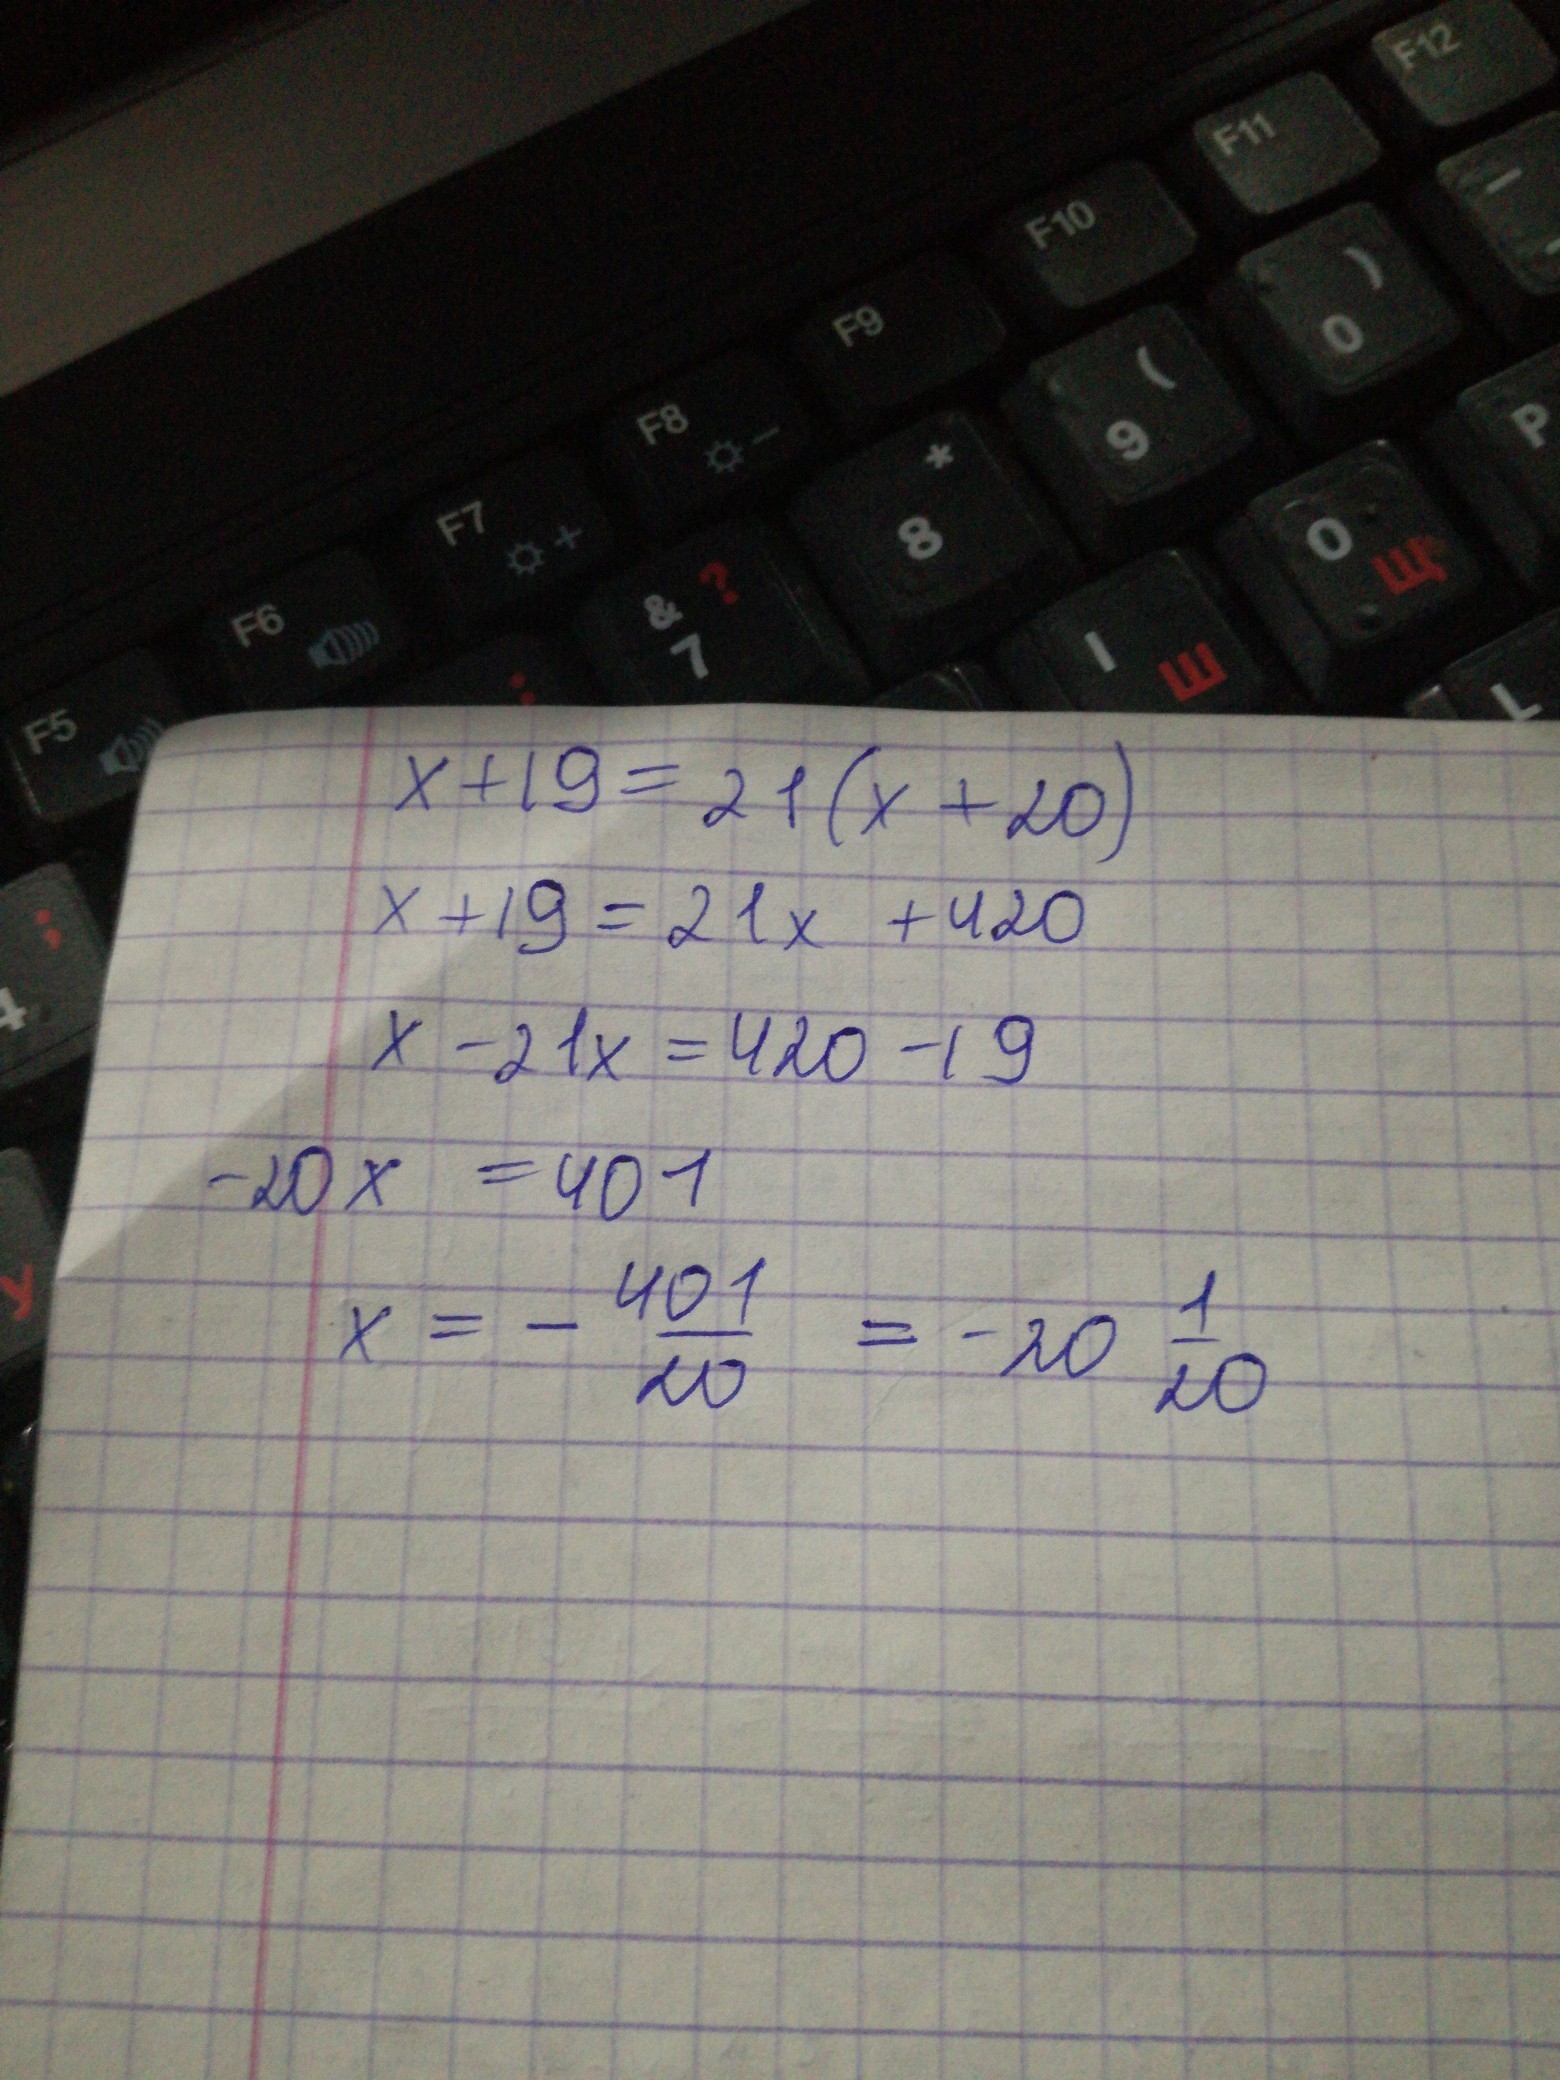 F12
F11
F10
F9
F8
F7
F6
F5
)
0
(
9
*
8
& ?
7
:
P
O Щ
I Ш
L
;
4
У
x + 19 = 21 (x + 20)
x + 19 = 21x + 420
x - 21x = 420 - 19
-20x = 401
x = - 401/20 = -20 1/20